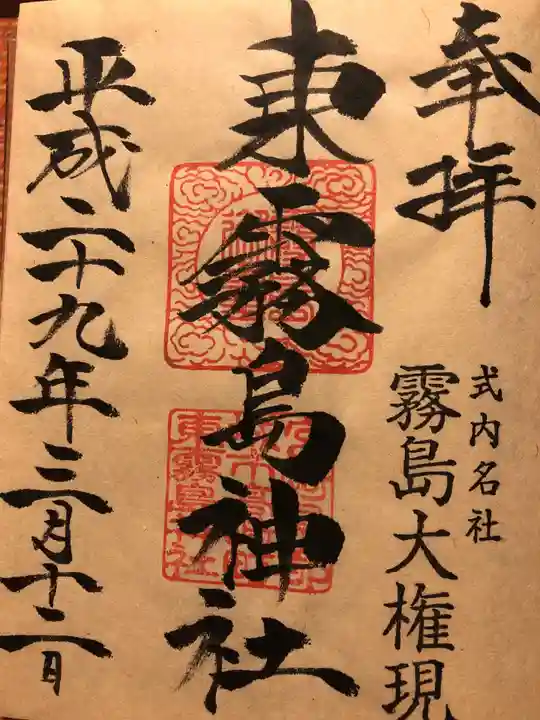 奉拝
式内名社
霧島大権現
東霧島神社
東霧島神社
平成二十九年三月十二日